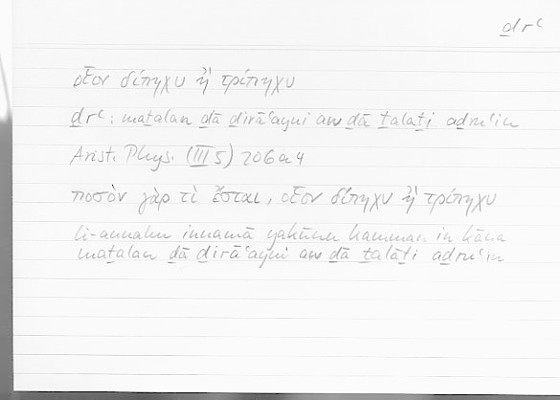 ḏrʿ
οἷον δίπηχυ ἢ τρίπηχυ
ḏrʿ: maṯalan ḏā ḏirāʿayni aw ḏā ṯalāṯi aḏruʿin
Arist. Phys. (III 5) 206a4
ποσὸν γὰρ τὶ ἔσται, οἷον δίπηχυ ἢ τρίπηχυ
li-annahu innamā yakūnu kamman in kāna
maṯalan ḏā ḏirāʿayni aw ḏā ṯalāṯi aḏruʿin